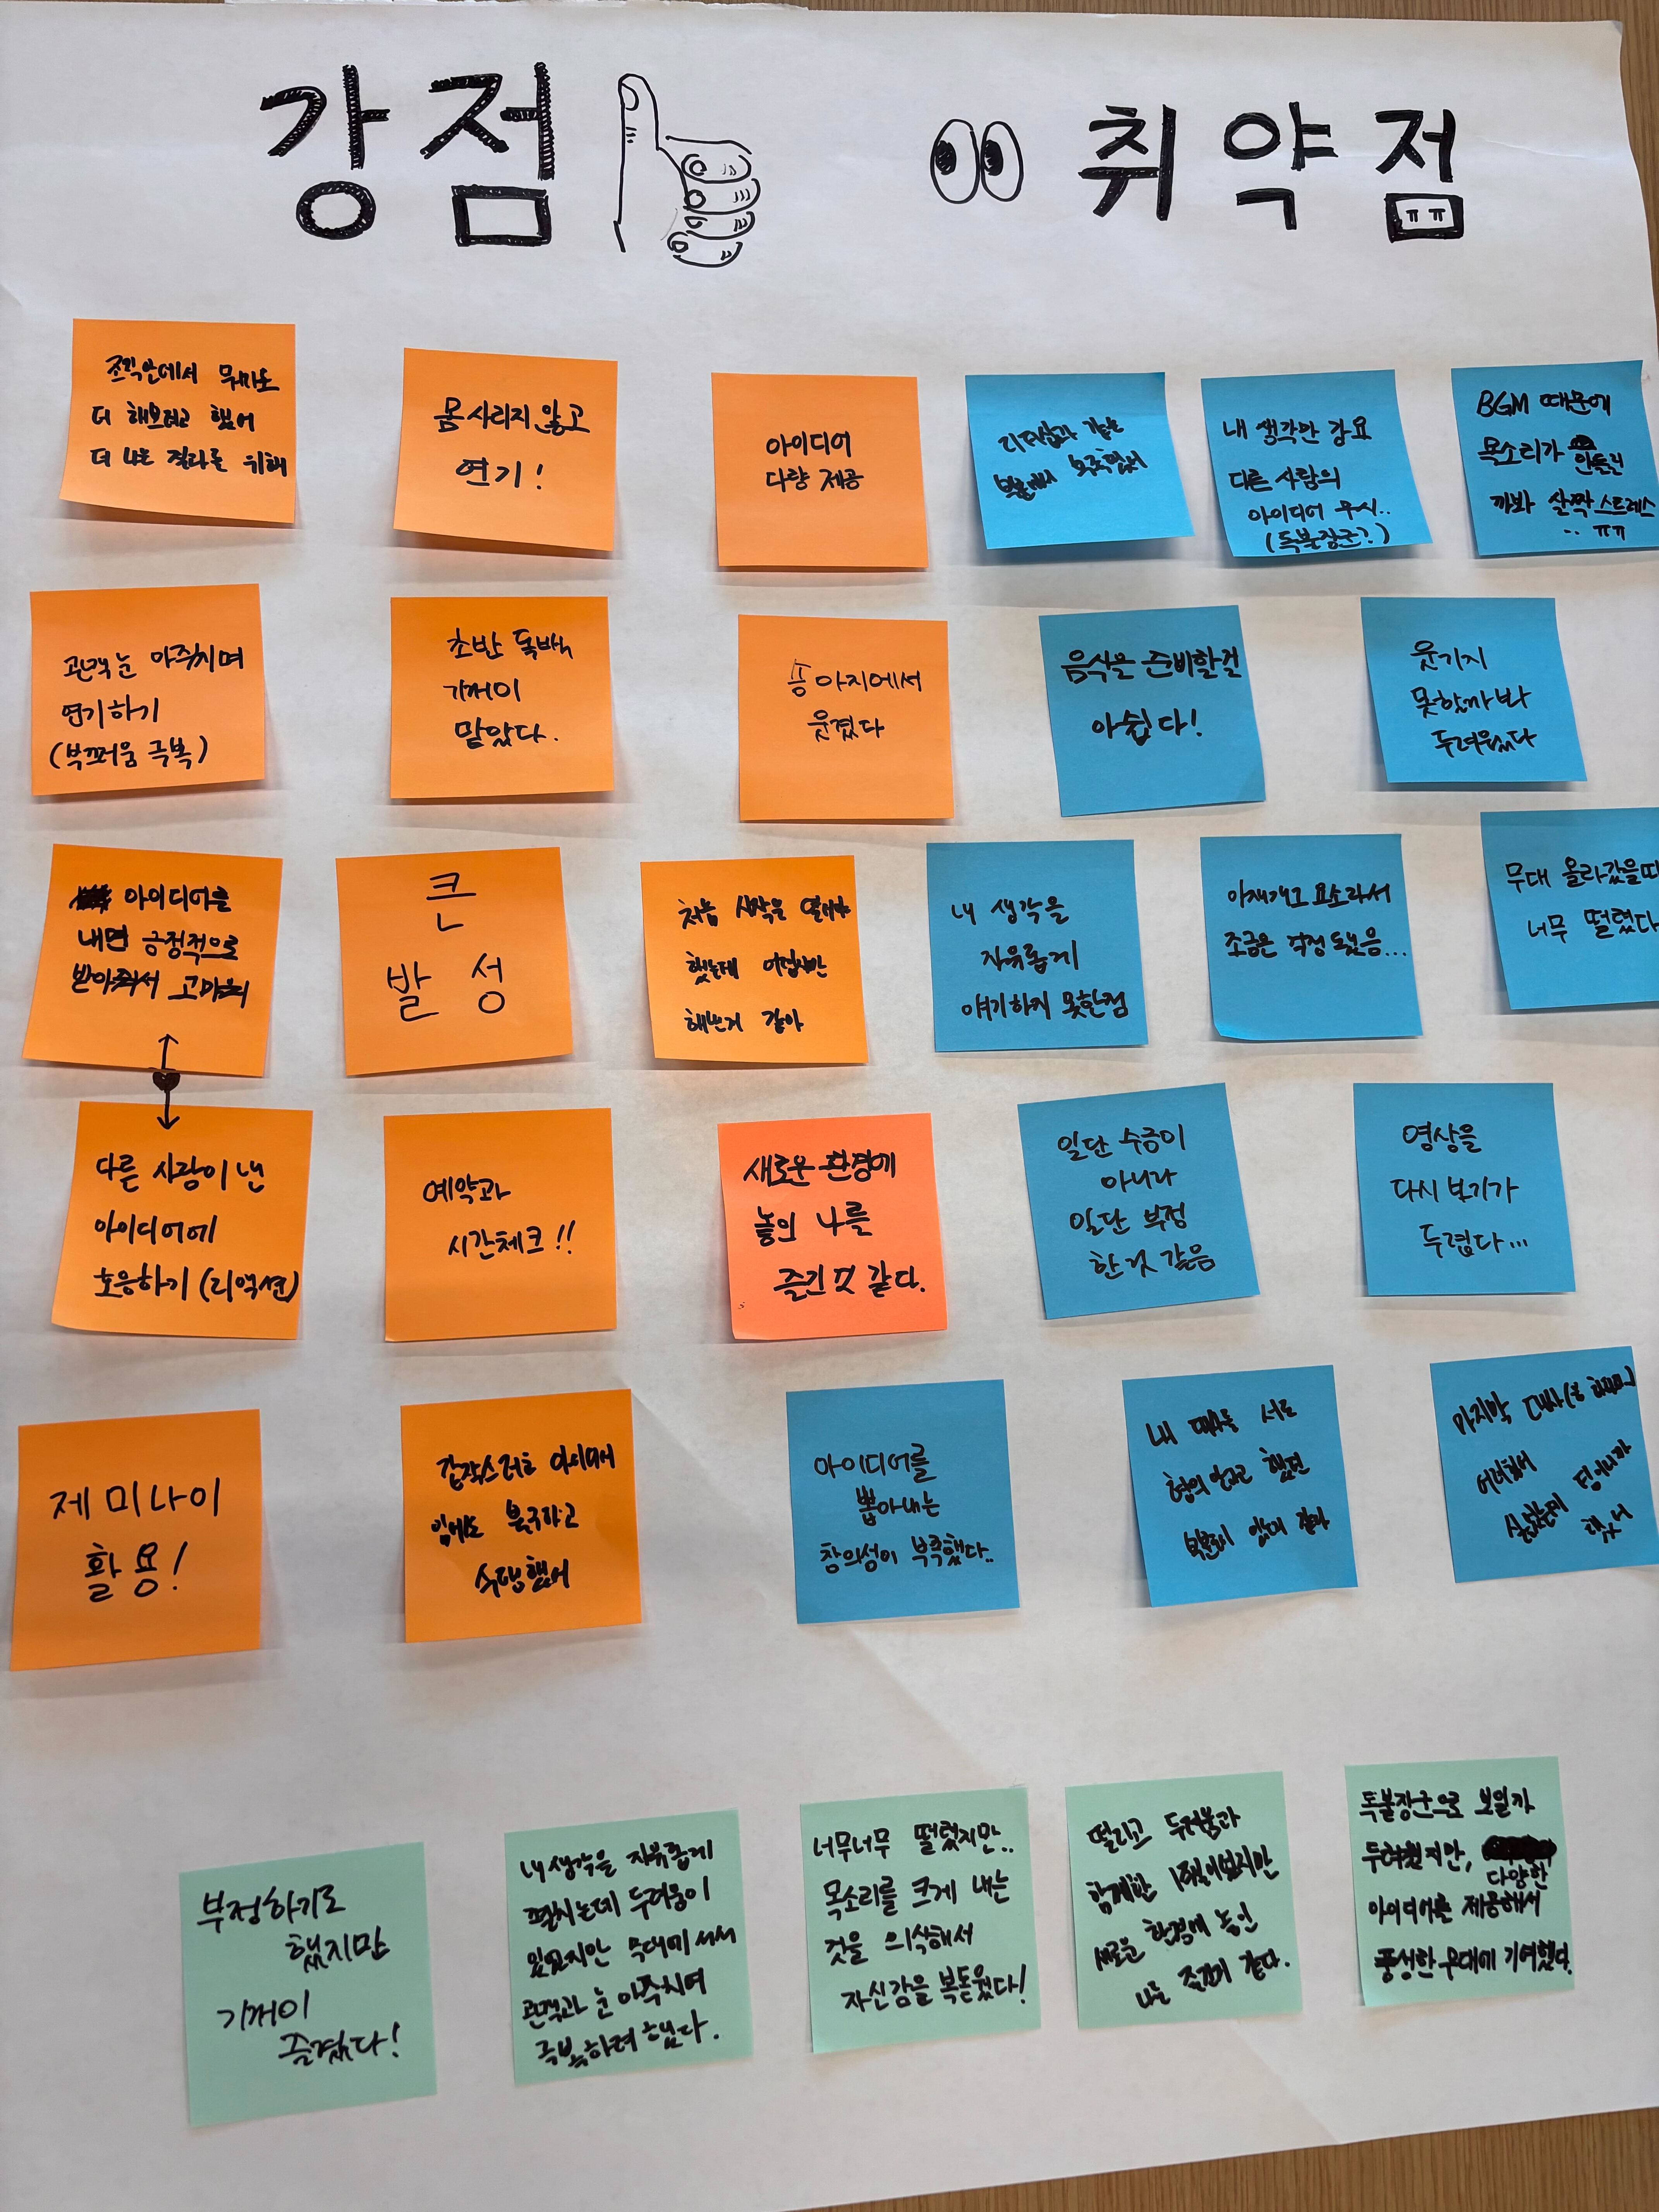 강점
취약점
ㅠㅠ
조직안에서 무대도
더 해보려고 했어
더 나은 결과를 위해
몸 사리지 않고
연기!
아이디어
다량 제공
리더십과 같은
부분에서 부족했어
내 생각만 강요
다른 사람의
아이디어 무시..
(독불장군?)
BGM 때문에
목소리가 안들린
까봐 살짝 스트레스
.. ㅠㅠ
관객 눈 마주치며
연기하기
(부끄러움 극복)
초반 독백
기꺼이
맡았다.
송아지에서
웃겼다
음식을 준비할걸
아쉽다!
웃기지
못할까봐
두려웠다
아이디어를
내면 긍정적으로
받아줘서 고마워
큰
발성
처음 시작을 열어야
했는데 어렵지만
해낸거 같아
내 생각을
자유롭게
얘기하지 못한점
아재개그 요소라서
조금은 걱정 됐음...
무대 올라갔을때
너무 떨렸다
다른 사람이 낸
아이디어에
호응하기 (리액션)
예약과
시간체크!!
새로운 환경에
놓인 나를
즐긴 것 같다.
일단 수긍이
아니라
일단 부정
한 것 같음
영상을
다시 보기가
두렵다...
제미나이
활용!
갑작스러운
임에도 불구하고
수행했어
아이디어를
뽑아내는
창의성이 부족했다..
내 서로
협의 안하고 했던
부분이 있던 같아
마지막 대사
어려워서
싫었는데
했어
부정하기도
했지만
기꺼이
즐겼다!
내 생각을 자유롭게
펼치는데 두려움이
있었지만 무대에 서서
관객과 눈 마주치며
극복하려 했다.
너무너무 떨렸지만..
목소리를 크게 내는
것을 의식해서
자신감을 북돋웠다!
떨리고 두려움과
함께한 1박2일이었지만
새로운 환경에 놓인
나를 즐긴거 같다.
독불장군으로 보일까
두려웠지만, 다양한
아이디어를 제공해서
풍성한 무대에 기여했다.